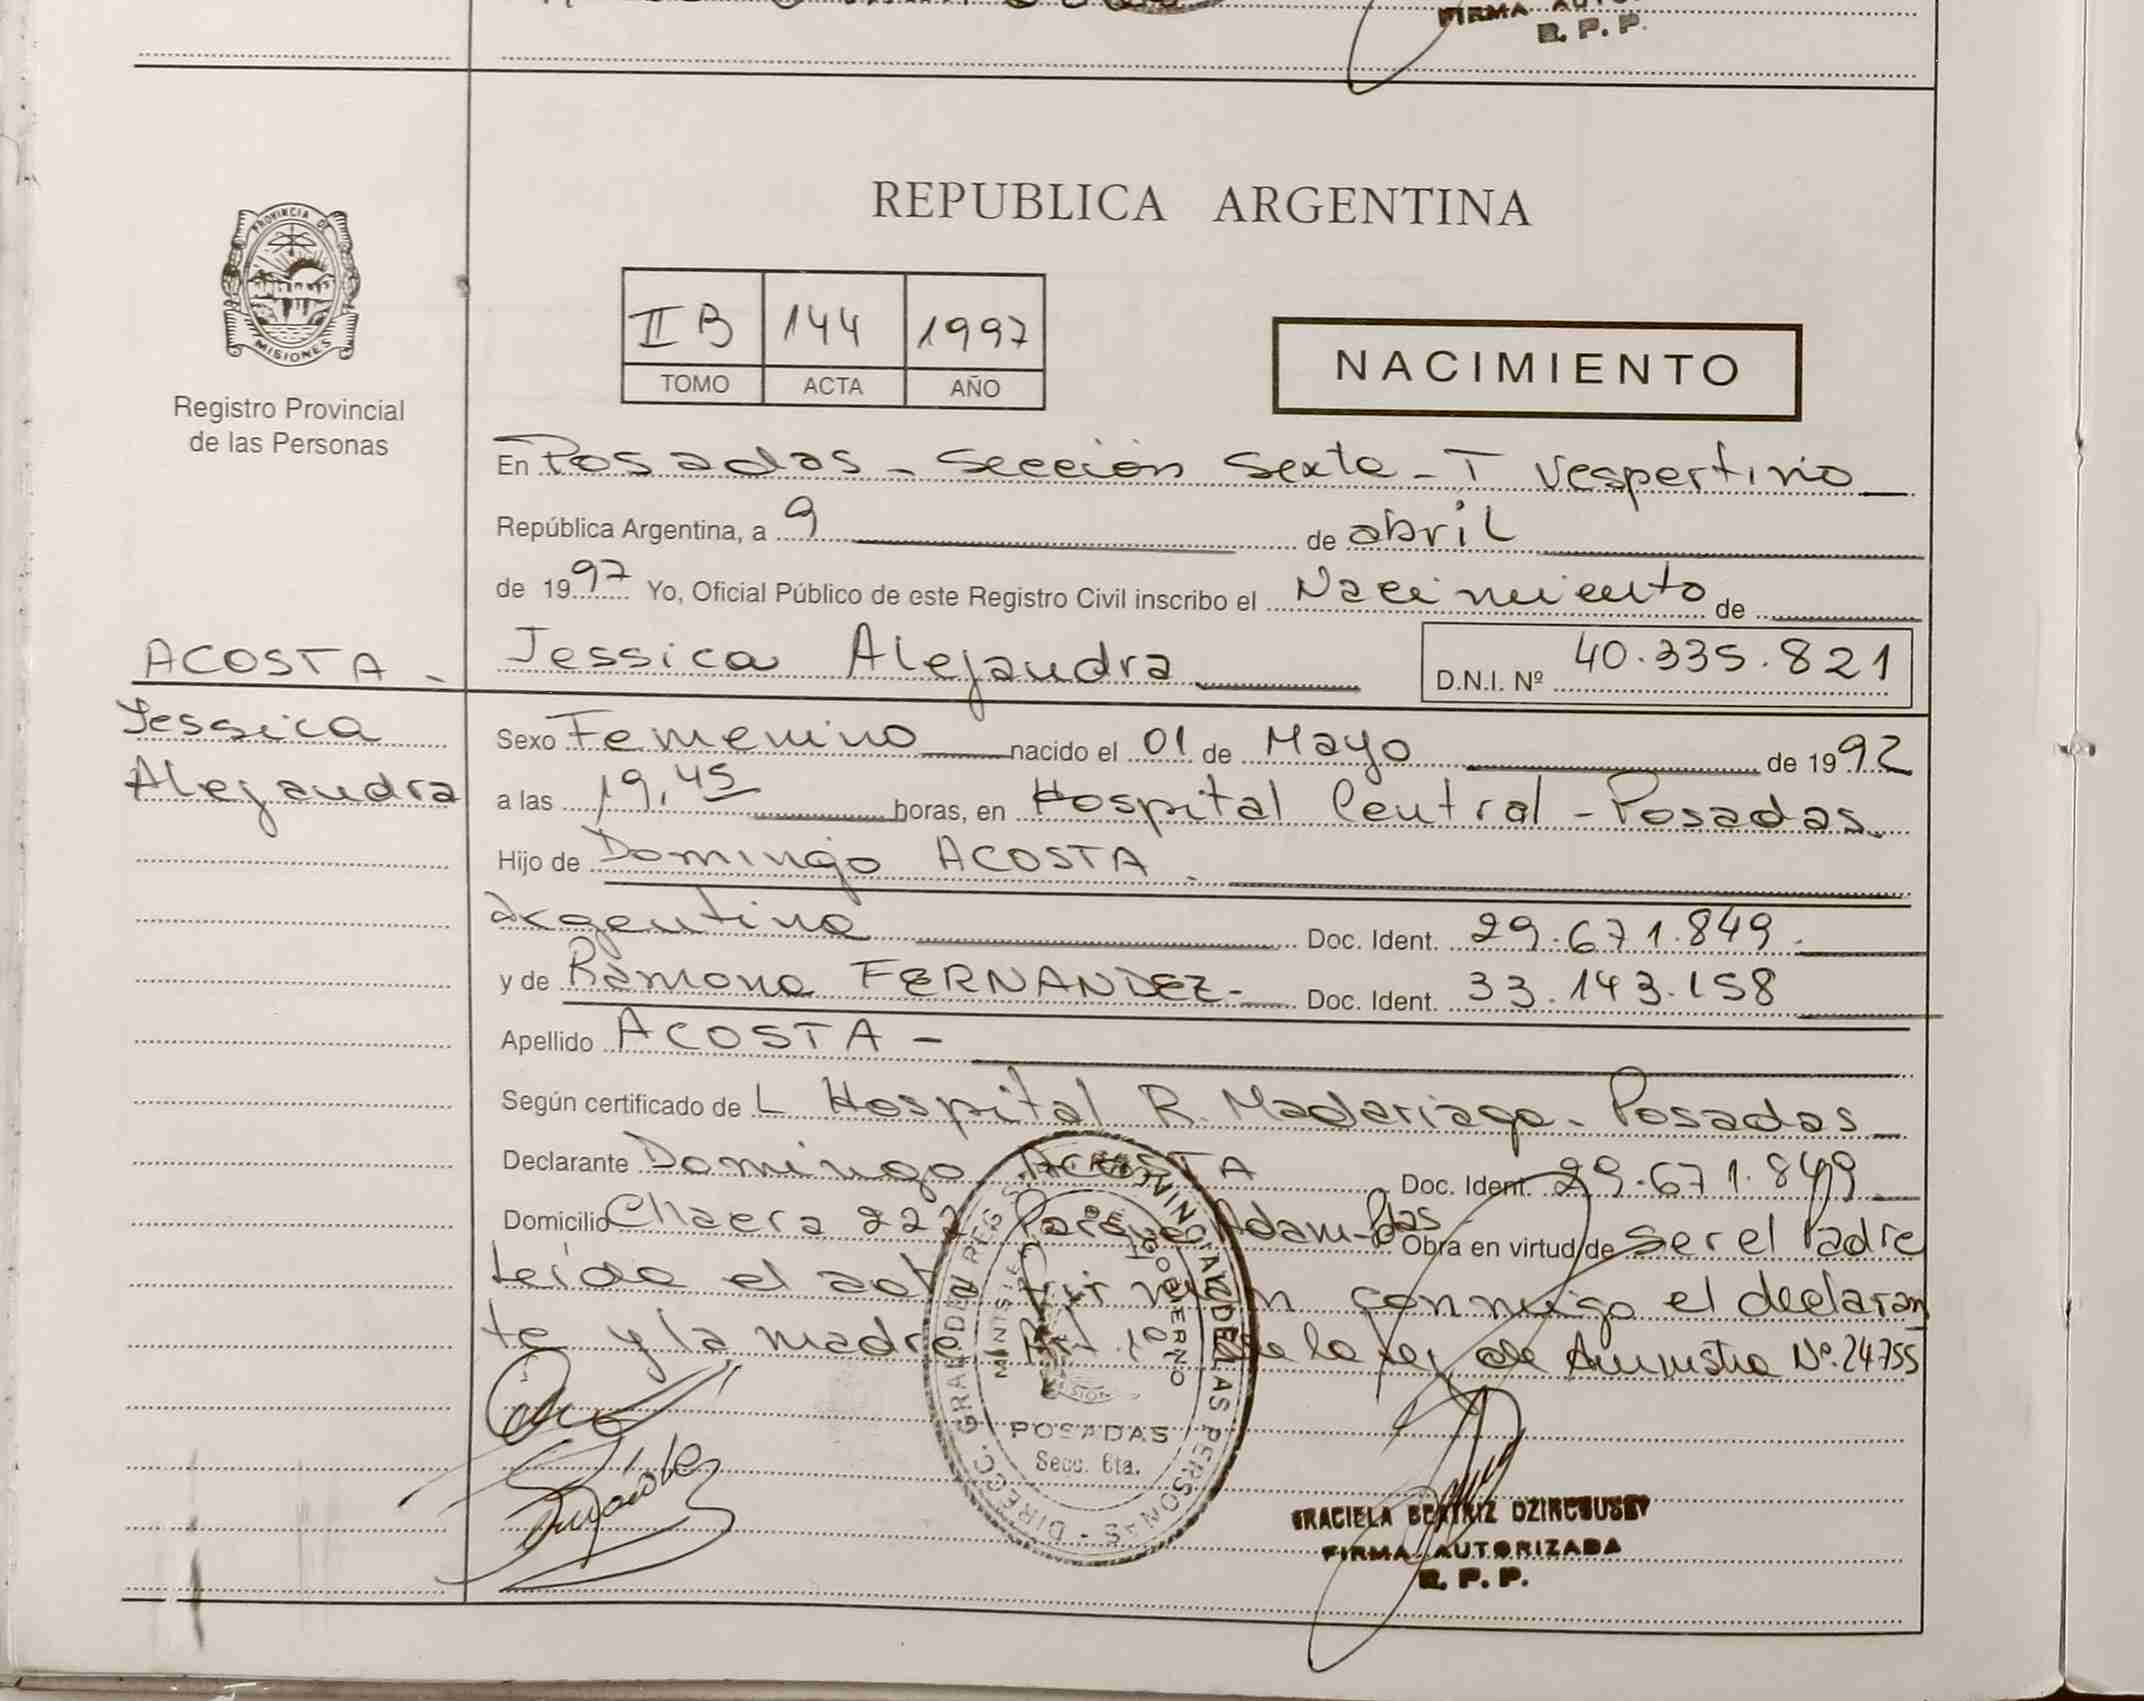 FIRMA AUTO
R. P. P.
REPUBLICA ARGENTINA
PROVINCIA DE
MISIONES
Registro Provincial
de las Personas
II B 144 1997
TOMO ACTA AÑO
NACIMIENTO
En Posadas - Sección Sexta - T Vespertino
República Argentina, a 9 de abril
de 1997 Yo, Oficial Público de este Registro Civil inscribo el Nacimiento de
ACOSTA - Jessica Alejandra D.N.I. Nº 40.335.821
Jessica
Alejandra
Sexo Femenino nacido el 01 de Mayo de 1992
a las 19,45 horas, en Hospital Central - Posadas.
Hijo de Domingo ACOSTA -
argentino Doc. Ident. 29.671.849.
y de Ramona FERNANDEZ- Doc. Ident. 33.143.158
Apellido ACOSTA -
Según certificado de L Hospital R. Madariaga - Posadas
Declarante Domingo ACOSTA Doc. Ident. 29.671.849
Domicilio Chacra 222 Parque Adam-Pdas - Obra en virtud de ser el Padre
Leída el conmigo el declaran
te y la madre de la ley de Amnistia Nº.24755
DIRECC. GRAL. DEL REG. PROVINCIAL DE LAS PERSONAS
MINISTERIO DE GOBIERNO
POSADAS
Secc. 6ta.
GRACIELA BEATRIZ
FIRMA AUTORIZADA
R. P. P.